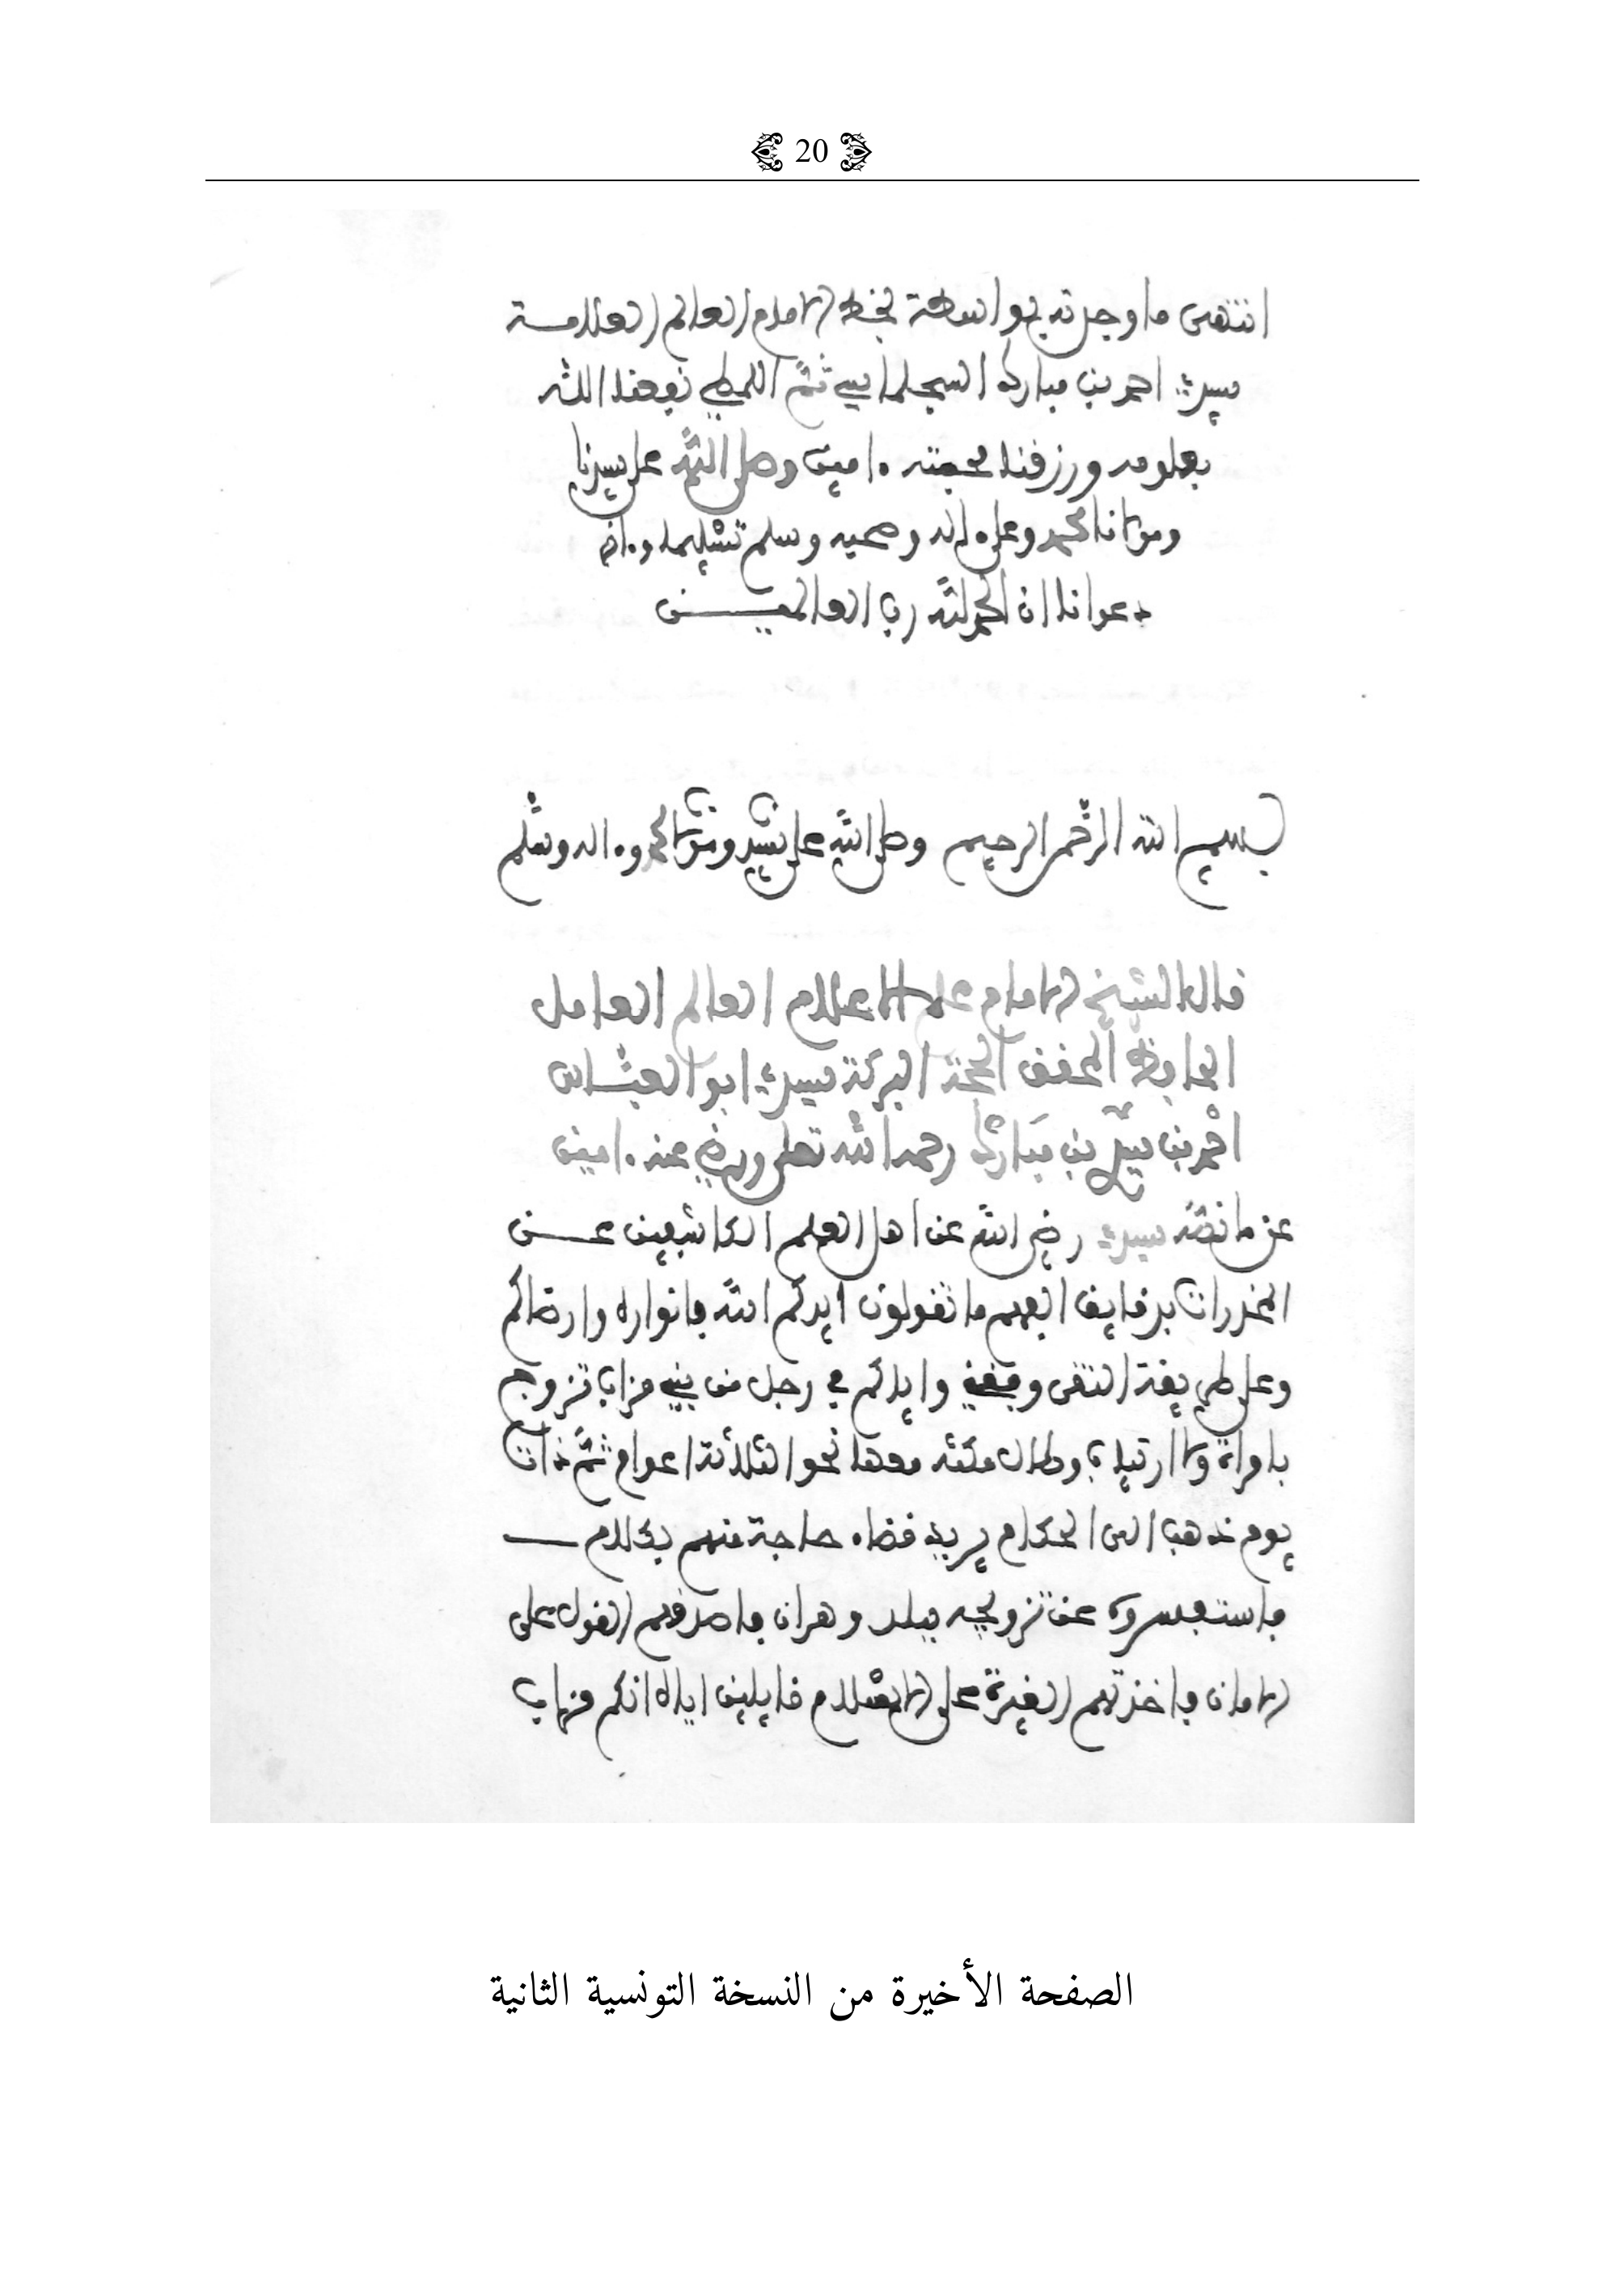 20
انتهى ما وجدته بواسطة بخط الامام العالم العلامسة
سيدي احمد بن مبارك السجلماسي ثم اللمطي نفعنا الله
بعلومه ورزقنا محبته ءامين وصلى الله على سيدنا
ومولانا محمد وعلى ءاله وصحبه وسلم تسليما وءاخر
دعوانا ان الحمد لله رب العالميـــن
بسم الله الرحمن الرحيم وصلى الله على سيدنا ومولانا محمد وءاله وسلم
قال الشيخ الامام علم الاعلام العالم العامل
الحافظ المحقق الحجة البركة سيدي ابو العباس
احمد بن علي بن مبارك رحمه الله تعلى ورضي عنه ءامين
عن ما نصه سيدي رضي الله عن اهل العلم الكاشفين عـــن
المخدرات بدقايق الفهم ما تقولون ايدكم الله بانواره وارضاكم
وعلى طريقة التقى وايدكم في رجل من بني مزاب تزوج
بامراة ولا ارتياب وطال مكثه معها نحو الثلاثة اعوام ثم ذات
يوم ذهب الى الحكام يريد قضاء حاجة منهم بكلام
فاستفسروه عن تزويجه ببلد وهران فاصدقهم القول على
الامان فاخذتهم الغيرة على الاسلام قايلين اياه انكم مزاب
الصفحة الأخيرة من النسخة التونسية الثانية